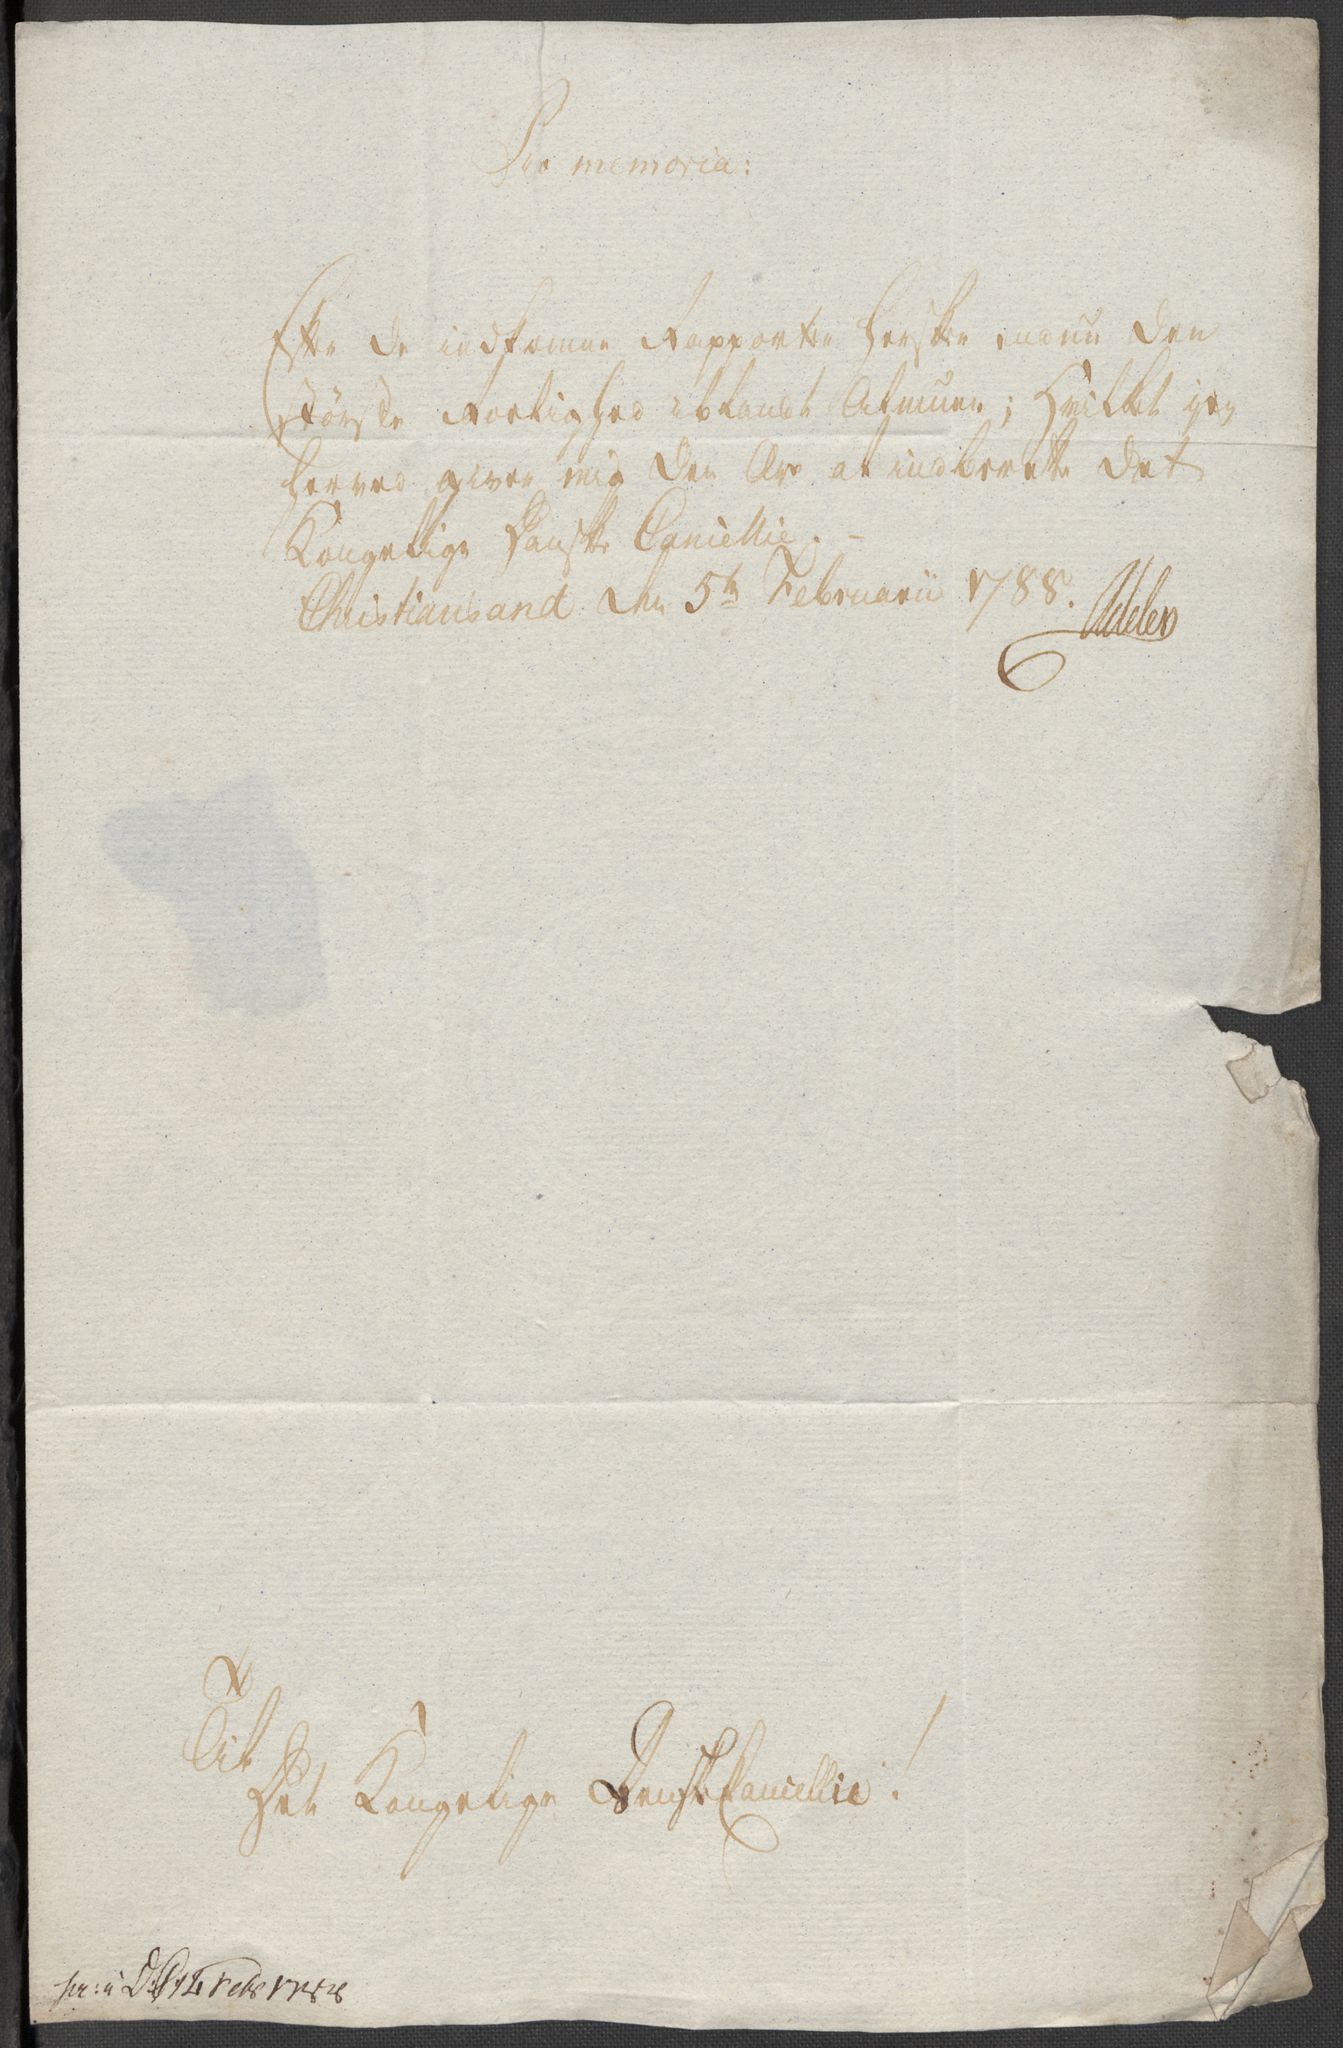 Pro memoria:
Efter de indkomne Rapporter hersker endnu den
største Roelighed iblandt Almuen; Hvilket jeg
herved giver mig den Ære at indberette det
Kongelige Danske Cancellie. –
Christiansand den 5te Februarii 1788.
Adeler
Til
Det Kongelige Danske Cancellie!
Febr 1788